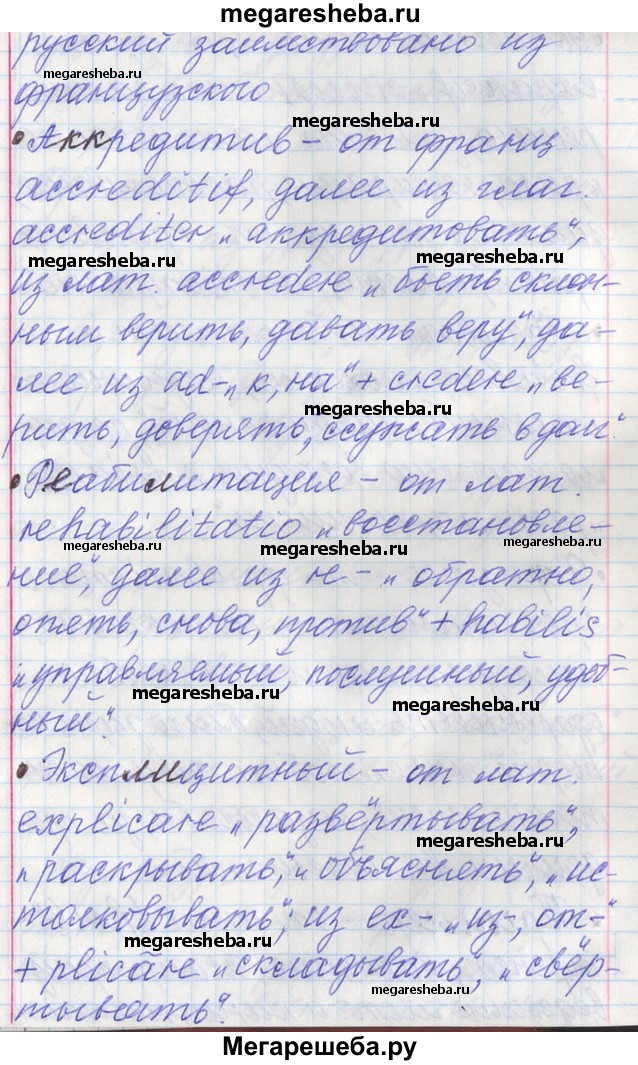 megaresheba.ru
русский заимствовано из
megaresheba.ru
французского
megaresheba.ru
• Аккредитив – от франц.
accreditif, далее из глаг.
accrediter „аккредитовать“,
megaresheba.ru
из лат. accredere „быть склон-
ным верить, давать веру“, да-
megaresheba.ru
лее из ad- „к, на“ + credere „ве-
megaresheba.ru
рить, доверять, ссужать в долг“.
• Реабилитация – от лат.
rehabilitatio „восстановле-
megaresheba.ru megaresheba.ru megaresheba.ru
ние“, далее из re- „обратно,
опять, снова, против“ + habilis
„управляемый, послушный, удоб-
megaresheba.ru megaresheba.ru
ный“.
• Эксплицитный – от лат.
explicare „развёртывать“,
megaresheba.ru
„раскрывать“, „объяснять“, „ис-
толковывать“; из ex- „из-, от-“
megaresheba.ru
+ plicāre „складывать“, „свёр-
megaresheba.ru
тывать“.
Мегарешеба.ру